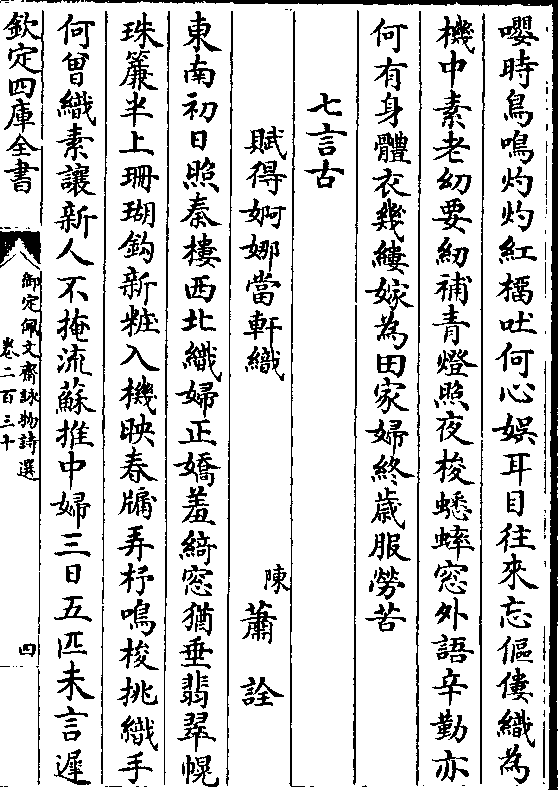 嚶時鳥鳴灼灼紅橘吐何心娛耳目往來忘傴僂織為
機中素老幼要紉補青燈照夜梭蟋蟀窓外語辛勤亦
何有身體衣幾縷嫁為田家婦終歲服勞苦
七言古
賦得婀娜當軒織
陳蕭詮
東南初日照秦樓西北織婦正嬌羞綺窓猶垂翡翠幌
珠簾半上珊瑚鈎新粧入機映春牖弄杼鳴梭挑織手
何曾織素讓新人不掩流蘇推中婦三日五匹未言遲
欽定四庫全書
御定佩文齋詠物詩選
卷二百三十
四